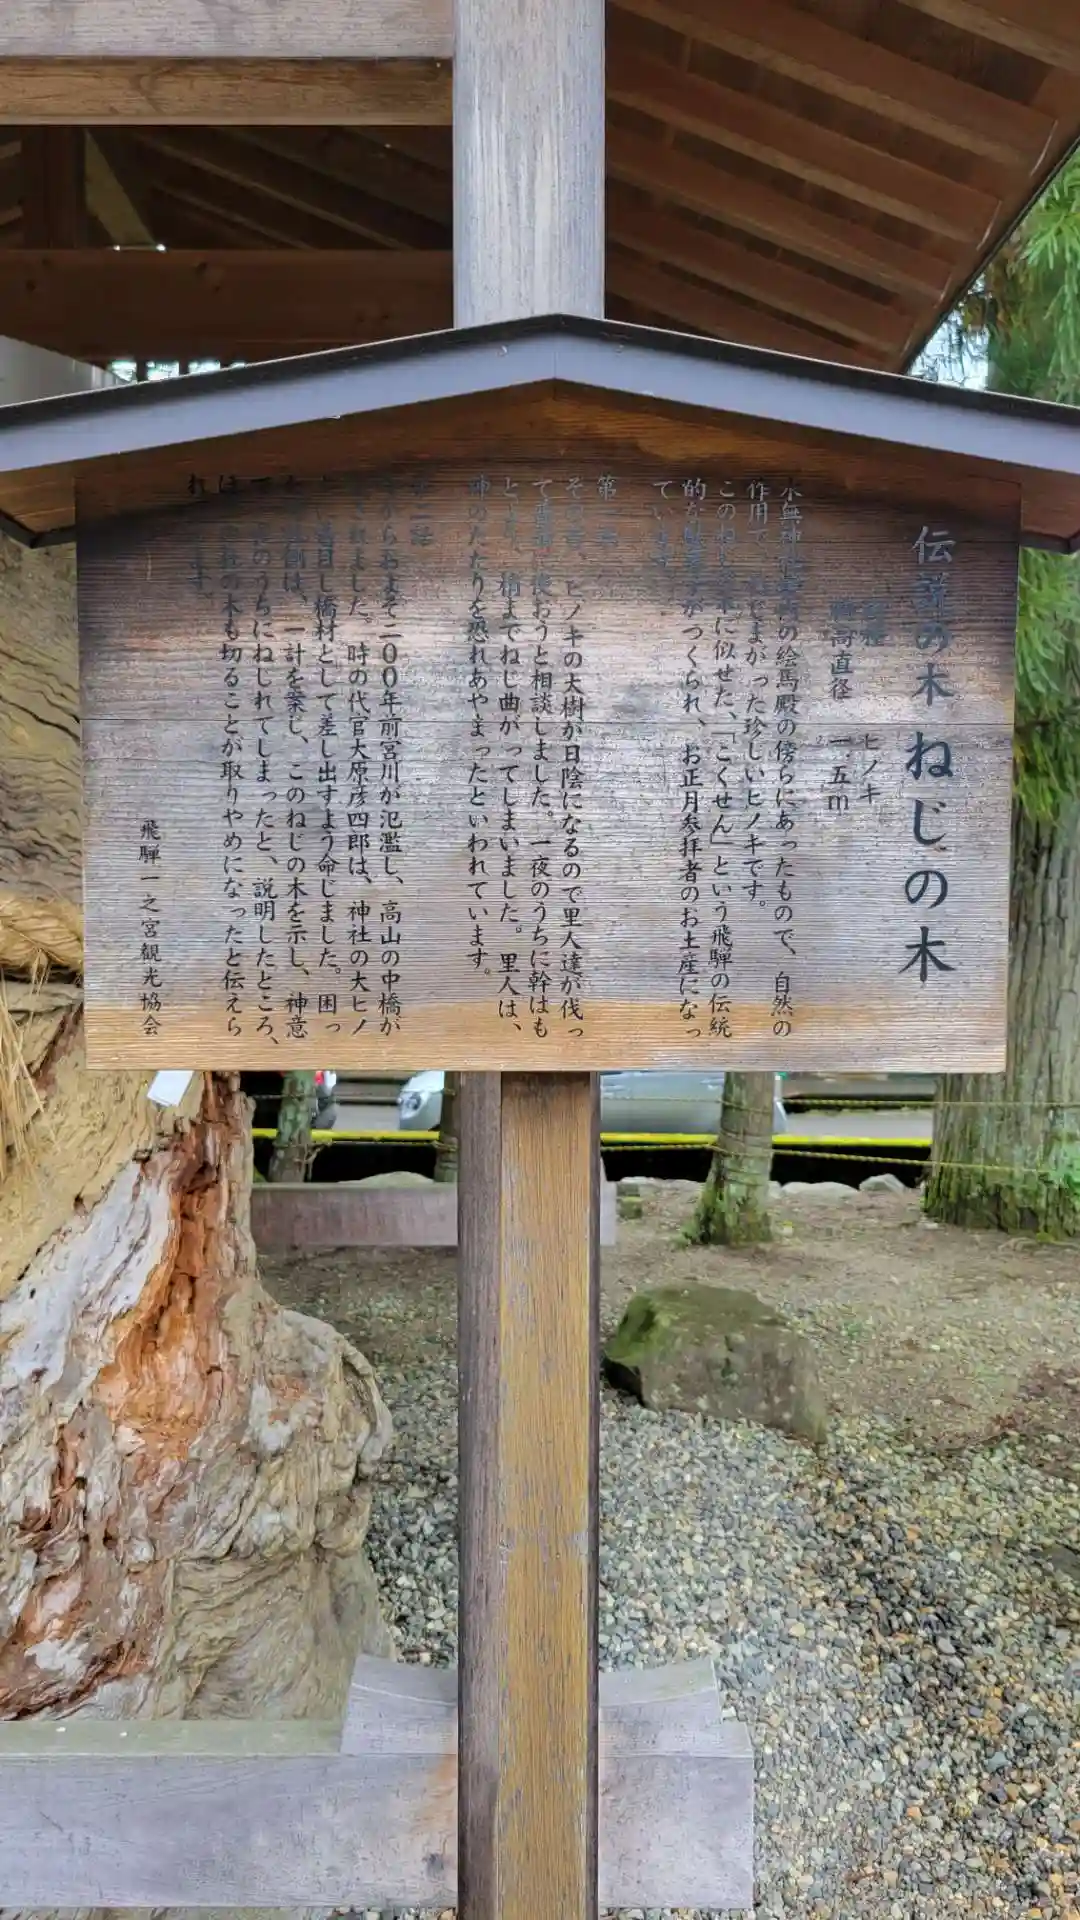 伝説の木 ねじの木
樹種 ヒノキ
胸高直径 一、五m
水無神社境内の絵馬殿の傍らにあったもので、自然の
作用で ねじまがった珍しいヒノキです。
このねじの木に似せた、「こくせん」という飛騨の伝統
的な駄菓子がつくられ、お正月参拝者のお土産になっ
ています。
第一話
その昔、ヒノキの大樹が日陰になるので里人達が伐っ
て 使おうと相談しました。一夜のうちに幹はも
とより、梢までねじ曲がってしまいました。里人は、
神のたたりを恐れあやまったといわれています。
第二話
今からおよそ二00年前宮川が氾濫し、高山の中橋が
流されました。時の代官大原彦四郎は、神社の大ヒノ
キに着目し橋材として差し出すよう命じました。困っ
た は、一計を案じ、このねじの木を示し、神意
で一夜のうちにねじれてしまったと、説明したところ、
ほかの の木も切ることが取りやめになったと伝えら
れています。
飛騨一之宮観光協会